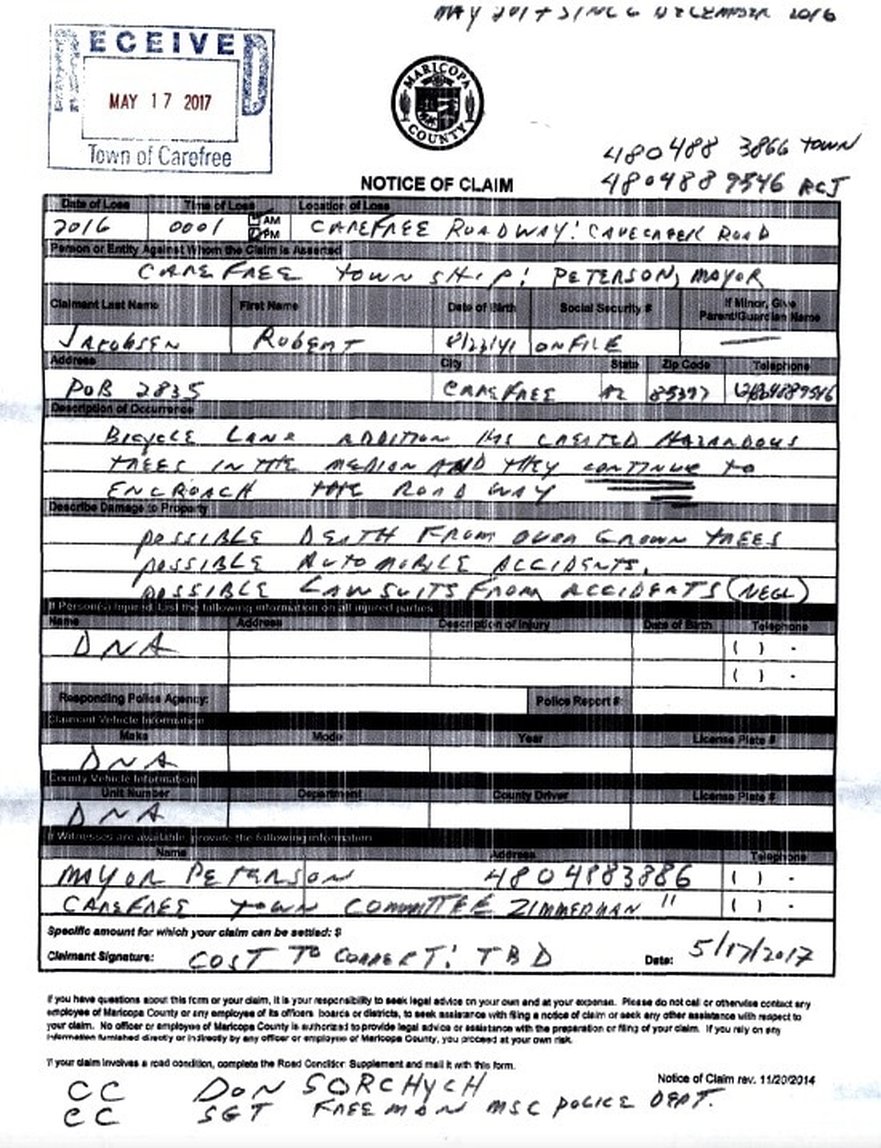 MAY 2017 SINCE DECEMBER 2016
RECEIVED
MAY 17 2017
Town of Carefree
MARICOPA COUNTY
480488 3866 TOWN
4804889546 RCJ
NOTICE OF CLAIM
Date of Loss Time of Loss Location of Loss
2016 0001 AM PM CAREFREE ROADWAY: CAVECREEK ROAD
Person or Entity Against Whom the Claim is Asserted
CAREFREE TOWNSHIP: PETERSON, MAYOR
Claimant Last Name First Name Date of Birth Social Security # If Minor, Give Parent/Guardian Name
JACOBSEN ROBERT ON FILE
Address City State Zip Code Telephone
POB 2835 CAREFREE AZ 85377 4804889546
Description of Occurrence
BICYCLE LANE ADDITION HAS CREATED HAZARDOUS
TREES IN THE MEDIAN AND THEY CONTINUE TO
ENCROACH THE ROADWAY
Describe Damage to Property
POSSIBLE DEATH FROM OVER GROWN TREES
POSSIBLE AUTOMOBILE ACCIDENTS.
POSSIBLE LAWSUITS FROM ACCIDENTS (NEGL)
If Person(s) Injured, List the following information on all injured parties
Name Address Description of Injury Date of Birth Telephone
DNA ( ) -
( ) -
Responding Police Agency: Police Report #
Claimant Vehicle Information
Make Model Year License Plate #
DNA
County Vehicle Information
Unit Number Department County Driver License Plate #
DNA
If Witnesses are available, provide the following information
Name Address Telephone
MAYOR PETERSON 4804883886 ( ) -
CAREFREE TOWN COMMITTEE ZIMMERMAN " ( ) -
Specific amount for which your claim can be settled: $
Claimant Signature: COST TO CORRERT: TBD Date: 5/17/2017
If you have questions about this form or your claim, it is your responsibility to seek legal advice on your own and at your expense. Please do not call or otherwise contact any
employee of Maricopa County or any employee of its officers, boards or districts, to seek assistance with filing a notice of claim or seek any other assistance with respect to
your claim. No officer or employee of Maricopa County is authorized to provide legal advice or assistance with the preparation or filing of your claim. If you rely on any
information furnished directly or indirectly by any officer or employee of Maricopa County, you proceed at your own risk.
If your claim involves a road condition, complete the Road Condition Supplement and mail it with this form.
Notice of Claim rev. 11/20/2014
CC DON SORCHYCH
CC SGT FREEMAN MSC POLICE DEPT.